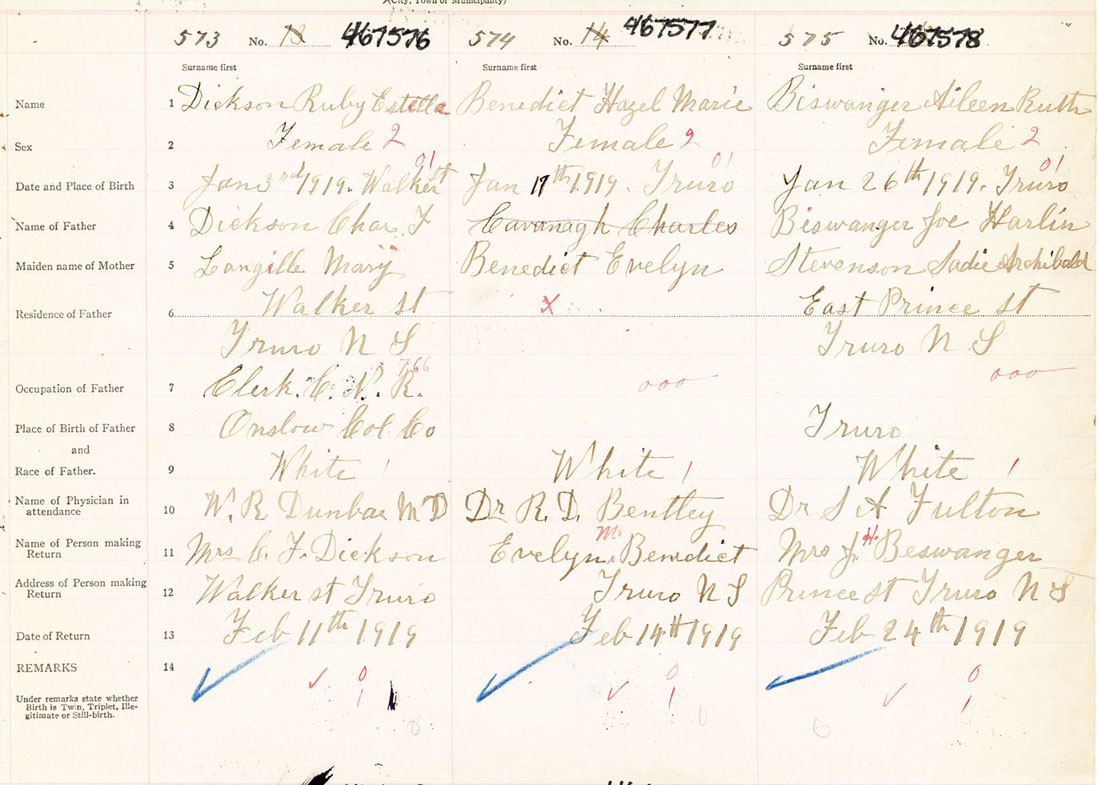 (City, Town or Municipality)
573 No. 13 467576 574 No. 14 467577 575 No. 467578
Surname first Surname first Surname first
Name 1 Dickson Ruby Estella Benedict Hazel Marie Biswanger Aileen Ruth
Sex 2 Female 2 Female 2 Female 2
01 01 01
Date and Place of Birth 3 Jan 3rd 1919. Walker St Jan 17th 1919. Truro Jan 26th 1919. Truro
Name of Father 4 Dickson Chas. F Cavanagh Charles Biswanger Joe Harlin
Maiden name of Mother 5 Langille Mary Benedict Evelyn Stevenson Sadie Archibald
Residence of Father 6 Walker St x East Prince St
Truro N S Truro N. S
766
Occupation of Father 7 Clerk. C. N. R. 000 000
Place of Birth of Father 8 Onslow Col. Co Truro
and
Race of Father. 9 White 1 White 1 White 1
Name of Physician in attendance 10 W. R Dunbar M D Dr R. D. Bentley Dr S A Fulton
Name of Person making Return 11 Mrs C. F. Dickson Evelyn M. Benedict Mrs J. H. Beswanger
Address of Person making Return 12 Walker st Truro Truro N S Prince st Truro N S
Date of Return 13 Feb 11th 1919 Feb 14th 1919 Feb 24th 1919
REMARKS 14 0 0 0
1 1 1
Under remarks state whether
Birth is Twin, Triplet, Ille-
gitimate or Still-birth.